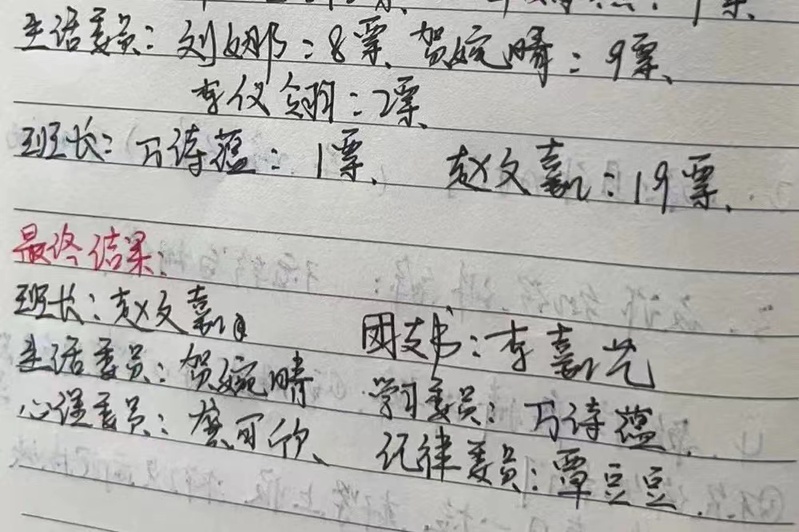 1票
生活委员：刘娜：8票、贺婉晴：9票、
李仪翎：2票、
班长：万诗蕴：1票、 赵文嘉：19票、
最终结果：
班长：赵文嘉 团支书：李嘉艺
生活委员：贺婉晴 学习委员：万诗蕴、
心理委员：詹可欣、 纪律委员：覃豆豆、